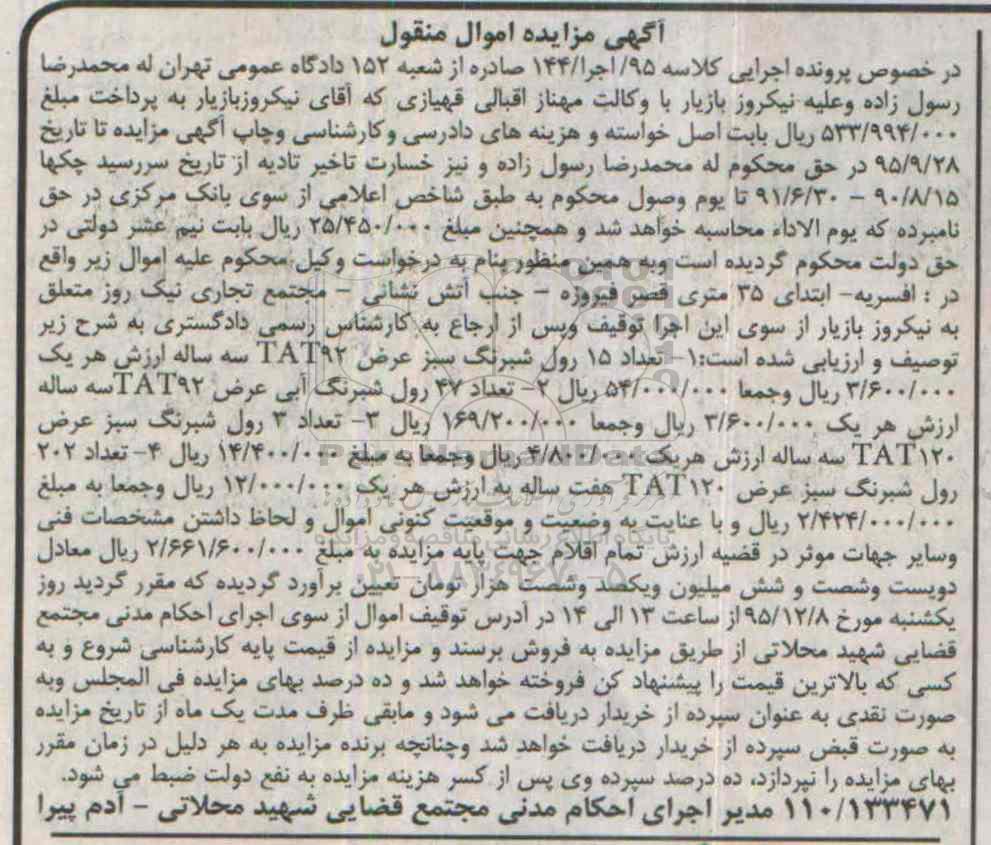 آگهی مزایده اموال منقول
در خصوص پرونده اجرایی کلاسه ۹۵/اجرا/۱۴۴ صادره از شعبه ۱۵۲ دادگاه عمومی تهران له محمدرضا
رسول زاده وعلیه نیکروز بازیار با وکالت مهناز اقبالی قهیازی که آقای نیکروزبازیار به پرداخت مبلغ
۵۳۳/۹۹۴/۰۰۰ ریال بابت اصل خواسته و هزینه های دادرسی وکارشناسی وچاپ آگهی مزایده تا تاریخ
۹۵/۹/۲۸ در حق محکوم له محمدرضا رسول زاده و نیز خسارت تاخیر تادیه از تاریخ سررسید چکها
۹۰/۸/۱۵ – ۹۱/۶/۳۰ تا یوم وصول محکوم به طبق شاخص اعلامی از سوی بانک مرکزی در حق
نامبرده که یوم الاداء محاسبه خواهد شد و همچنین مبلغ ۲۵/۴۵۰/۰۰۰ ریال بابت نیم عشر دولتی در
حق دولت محکوم گردیده است وبه همین منظور بنام به درخواست وکیل محکوم علیه اموال زیر واقع
در : افسریه– ابتدای ۳۵ متری قصر فیروزه – جنب آتش نشانی – مجتمع تجاری نیک روز متعلق
به نیکروز بازیار از سوی این اجرا توقیف وپس از ارجاع به کارشناس رسمی دادگستری به شرح زیر
توصیف و ارزیابی شده است:۱– تعداد ۱۵ رول شبرنگ سبز عرض TAT۹۲ سه ساله ارزش هر یک
۳/۶۰۰/۰۰۰ ریال وجمعا ۵۴/۰۰۰/۰۰۰ ریال ۲– تعداد ۴۷ رول شبرنگ آبی عرض TAT۹۲سه ساله
ارزش هر یک ۳/۶۰۰/۰۰۰ ریال وجمعا ۱۶۹/۲۰۰/۰۰۰ ریال ۳– تعداد ۳ رول شبرنگ سبز عرض
TAT۱۲۰ سه ساله ارزش هریک ۴/۸۰۰/۰۰۰ ریال وجمعا به مبلغ ۱۴/۴۰۰/۰۰۰ ریال ۴– تعداد ۲۰۲
رول شبرنگ سبز عرض TAT۱۲۰ هفت ساله به ارزش هر یک ۱۲/۰۰۰/۰۰۰ ریال وجمعا به مبلغ
۲/۴۲۴/۰۰۰/۰۰۰ ریال و با عنایت به وضعیت و موقعیت کنونی اموال و لحاظ داشتن مشخصات فنی
وسایر جهات موثر در قضیه ارزش تمام اقلام جهت پایه مزایده به مبلغ ۲/۶۶۱/۶۰۰/۰۰۰ ریال معادل
دویست وشصت و شش میلیون ویکصد وشصت هزار تومان تعیین برآورد گردیده که مقرر گردید روز
یکشنبه مورخ ۹۵/۱۲/۸ از ساعت ۱۳ الی ۱۴ در آدرس توقیف اموال از سوی اجرای احکام مدنی مجتمع
قضایی شهید محلاتی از طریق مزایده به فروش برسند و مزایده از قیمت پایه کارشناسی شروع و به
کسی که بالاترین قیمت را پیشنهاد کن فروخته خواهد شد و ده درصد بهای مزایده فی المجلس وبه
صورت نقدی به عنوان سپرده از خریدار دریافت می شود و مابقی ظرف مدت یک ماه از تاریخ مزایده
به صورت قبض سپرده از خریدار دریافت خواهد شد وچنانچه برنده مزایده به هر دلیل در زمان مقرر
بهای مزایده را نپردازد، ده درصد سپرده وی پس از کسر هزینه مزایده به نفع دولت ضبط می شود.
۱۱۰/۱۳۳۴۷۱ مدیر اجرای احکام مدنی مجتمع قضایی شهید محلاتی – آدم پیرا